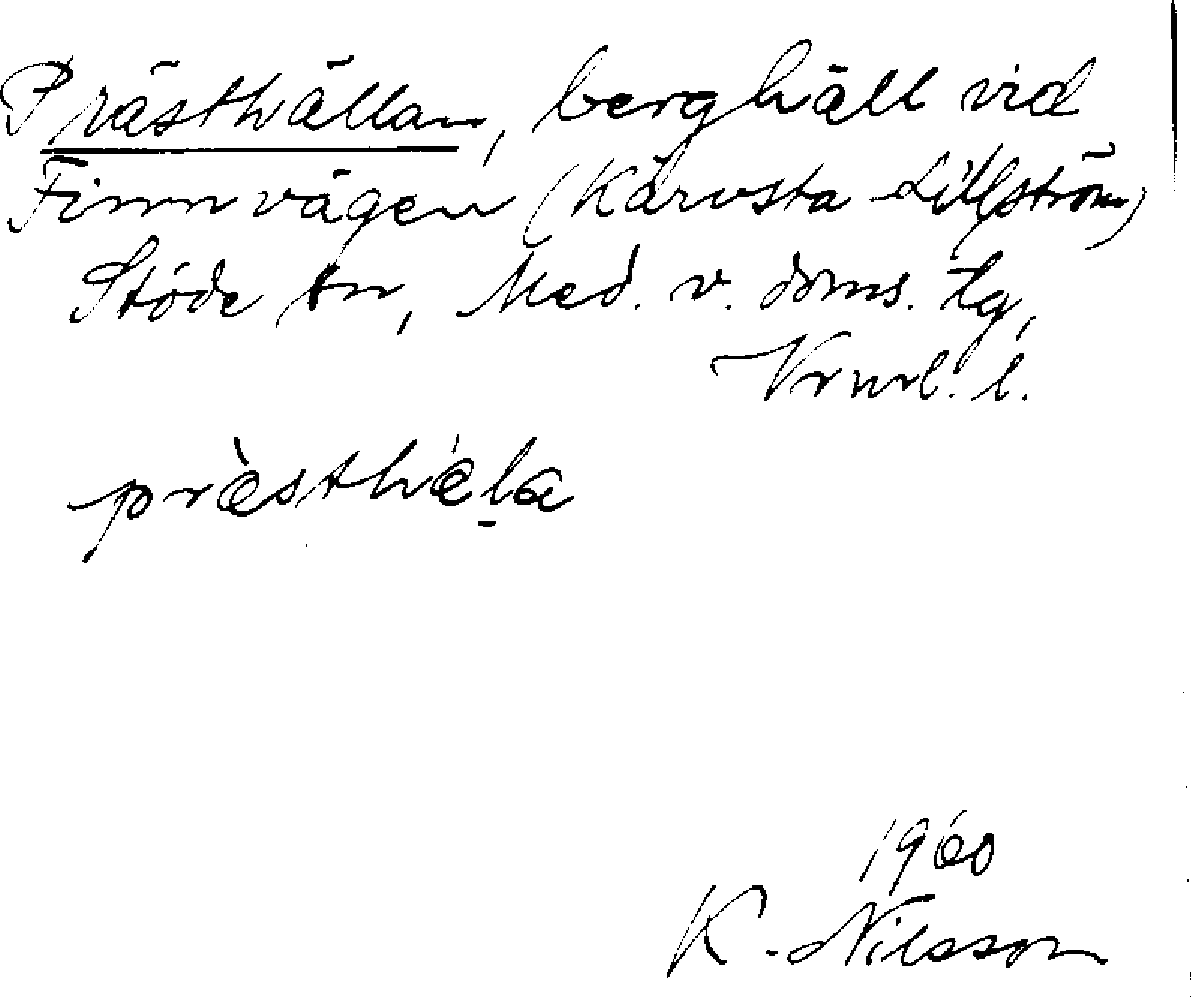 Prästhällan, berghäll vid
Finnvägen (Kärvsta Lillström)
Stöde sn, Med. v. doms. tg,
Vrnrl. l.
prèsthéla
1960
K. Nilsson